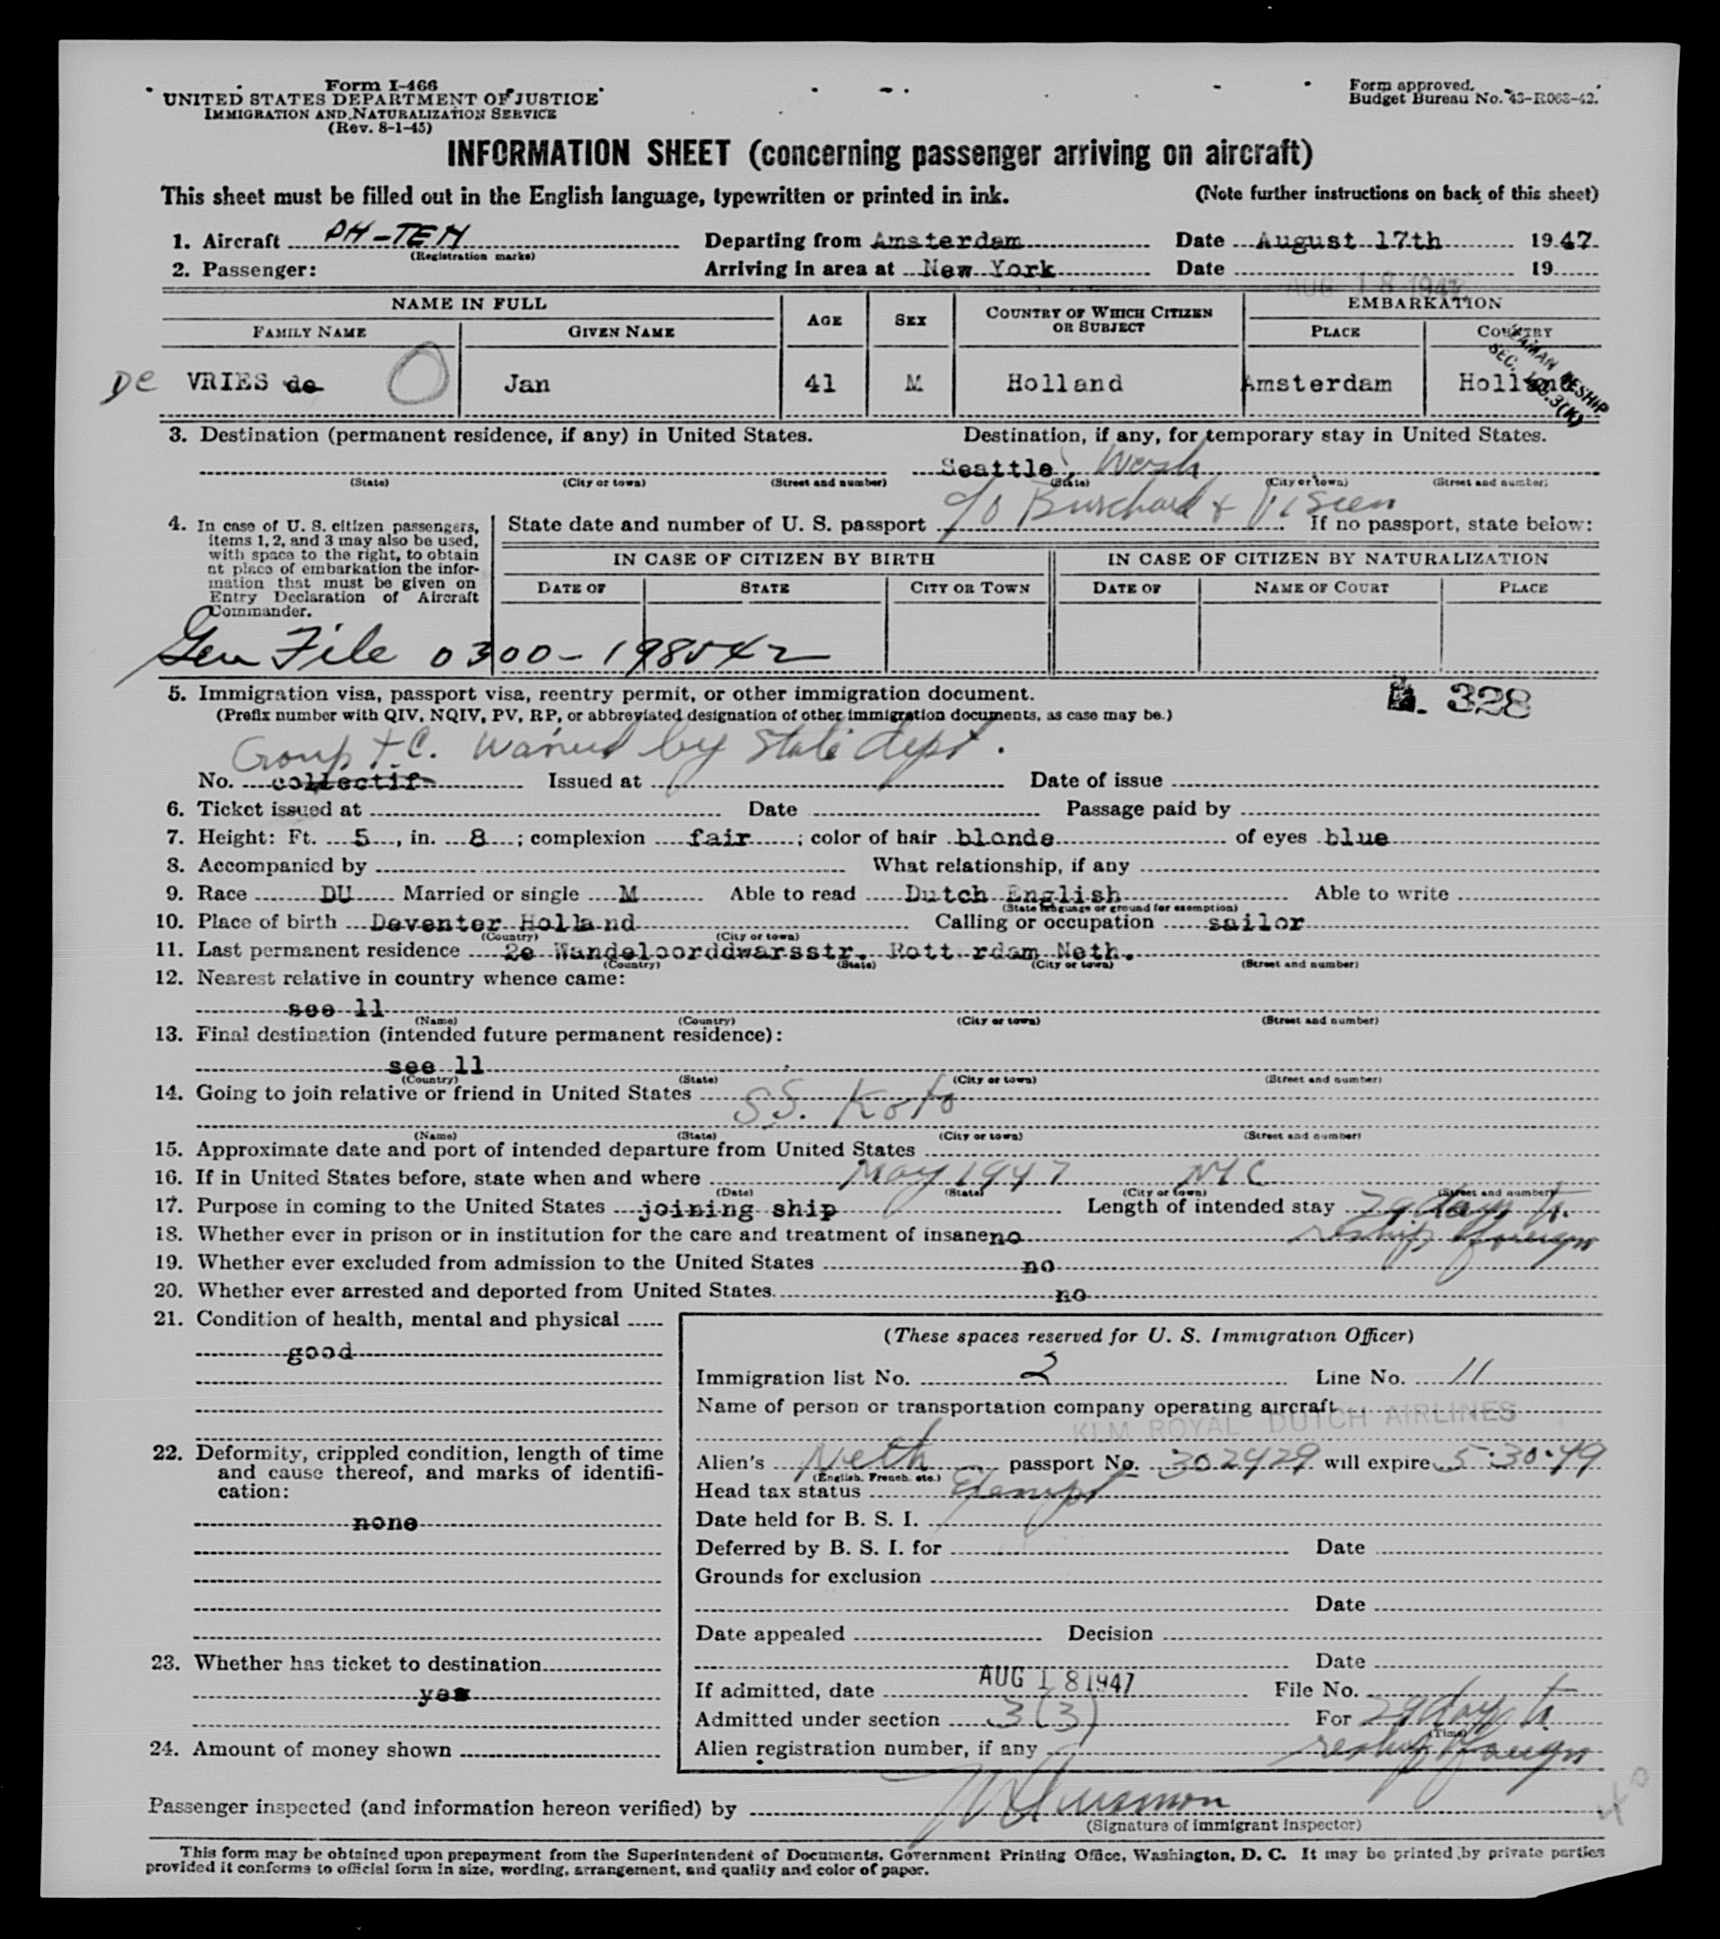 Form I-466
UNITED STATES DEPARTMENT OF JUSTICE
IMMIGRATION AND NATURALIZATION SERVICE
(Rev. 8-1-45)
Form approved.
Budget Bureau No. 43-R063-42.
INFORMATION SHEET (concerning passenger arriving on aircraft)
This sheet must be filled out in the English language, typewritten or printed in ink. (Note further instructions on back of this sheet)
1. Aircraft PH-TEM Departing from Amsterdam Date August 17th 1947
(Registration marks)
2. Passenger: Arriving in area at New York Date 19
AUG 18 1947
NAME IN FULL AGE SEX COUNTRY OF WHICH CITIZEN OR SUBJECT EMBARKATION
FAMILY NAME GIVEN NAME PLACE COUNTRY
De VRIES de Jan 41 M Holland Amsterdam Holland
SEC. 3(K) RESHIP
3. Destination (permanent residence, if any) in United States. Destination, if any, for temporary stay in United States.
Seattle, Wash
(State) (City or town) (Street and number) (State) (City or town) (Street and number)
c/o Burchard &
4. In case of U. S. citizen passengers, items 1, 2, and 3 may also be used, with space to the right, to obtain at place of embarkation the information that must be given on Entry Declaration of Aircraft Commander.
State date and number of U. S. passport If no passport, state below:
IN CASE OF CITIZEN BY BIRTH IN CASE OF CITIZEN BY NATURALIZATION
DATE OF STATE CITY OR TOWN DATE OF NAME OF COURT PLACE
Gen File 0300-198542
5. Immigration visa, passport visa, reentry permit, or other immigration document. 328
(Prefix number with QIV, NQIV, PV, RP, or abbreviated designation of other immigration documents, as case may be.)
Group T.C. waived by State dept.
No. collectif Issued at Date of issue
6. Ticket issued at Date Passage paid by
7. Height: Ft. 5, in. 8; complexion fair; color of hair blonde of eyes blue
8. Accompanied by What relationship, if any
9. Race DU Married or single M Able to read Dutch English Able to write
(State language or ground for exemption)
10. Place of birth Deventer Holland Calling or occupation sailor
(Country) (City or town)
11. Last permanent residence 2e Wandeloorddwarsstr. Rott rdam Neth.
(Country) (State) (City or town) (Street and number)
12. Nearest relative in country whence came:
see 11
(Name) (Country) (City or town) (Street and number)
13. Final destination (intended future permanent residence):
see 11
(Country) (State) (City or town) (Street and number)
14. Going to join relative or friend in United States
SS. Koto
(Name) (State) (City or town) (Street and number)
15. Approximate date and port of intended departure from United States
16. If in United States before, state when and where May 1947 NYC
(Date) (State) (City or town) (Street and number)
17. Purpose in coming to the United States joining ship Length of intended stay 29 days to
reship foreign
18. Whether ever in prison or in institution for the care and treatment of insane no
19. Whether ever excluded from admission to the United States no
20. Whether ever arrested and deported from United States no
21. Condition of health, mental and physical
good
22. Deformity, crippled condition, length of time and cause thereof, and marks of identification:
none
23. Whether has ticket to destination
yes
24. Amount of money shown
(These spaces reserved for U. S. Immigration Officer)
Immigration list No. 2 Line No. 11
Name of person or transportation company operating aircraft
KLM ROYAL DUTCH AIRLINES
Alien's Neth passport No. 302429 will expire 5-30-49
(English, French, etc.)
Head tax status Exempt
Date held for B. S. I.
Deferred by B. S. I. for Date
Grounds for exclusion
Date
Date appealed Decision
Date
If admitted, date AUG 18 1947 File No.
Admitted under section 3(3) For 29 days to
(Time)
Alien registration number, if any reship foreign
Passenger inspected (and information hereon verified) by
(Signature of immigrant inspector)
This form may be obtained upon prepayment from the Superintendent of Documents, Government Printing Office, Washington, D. C. It may be printed by private parties
provided it conforms to official form in size, wording, arrangement, and quality and color of paper.